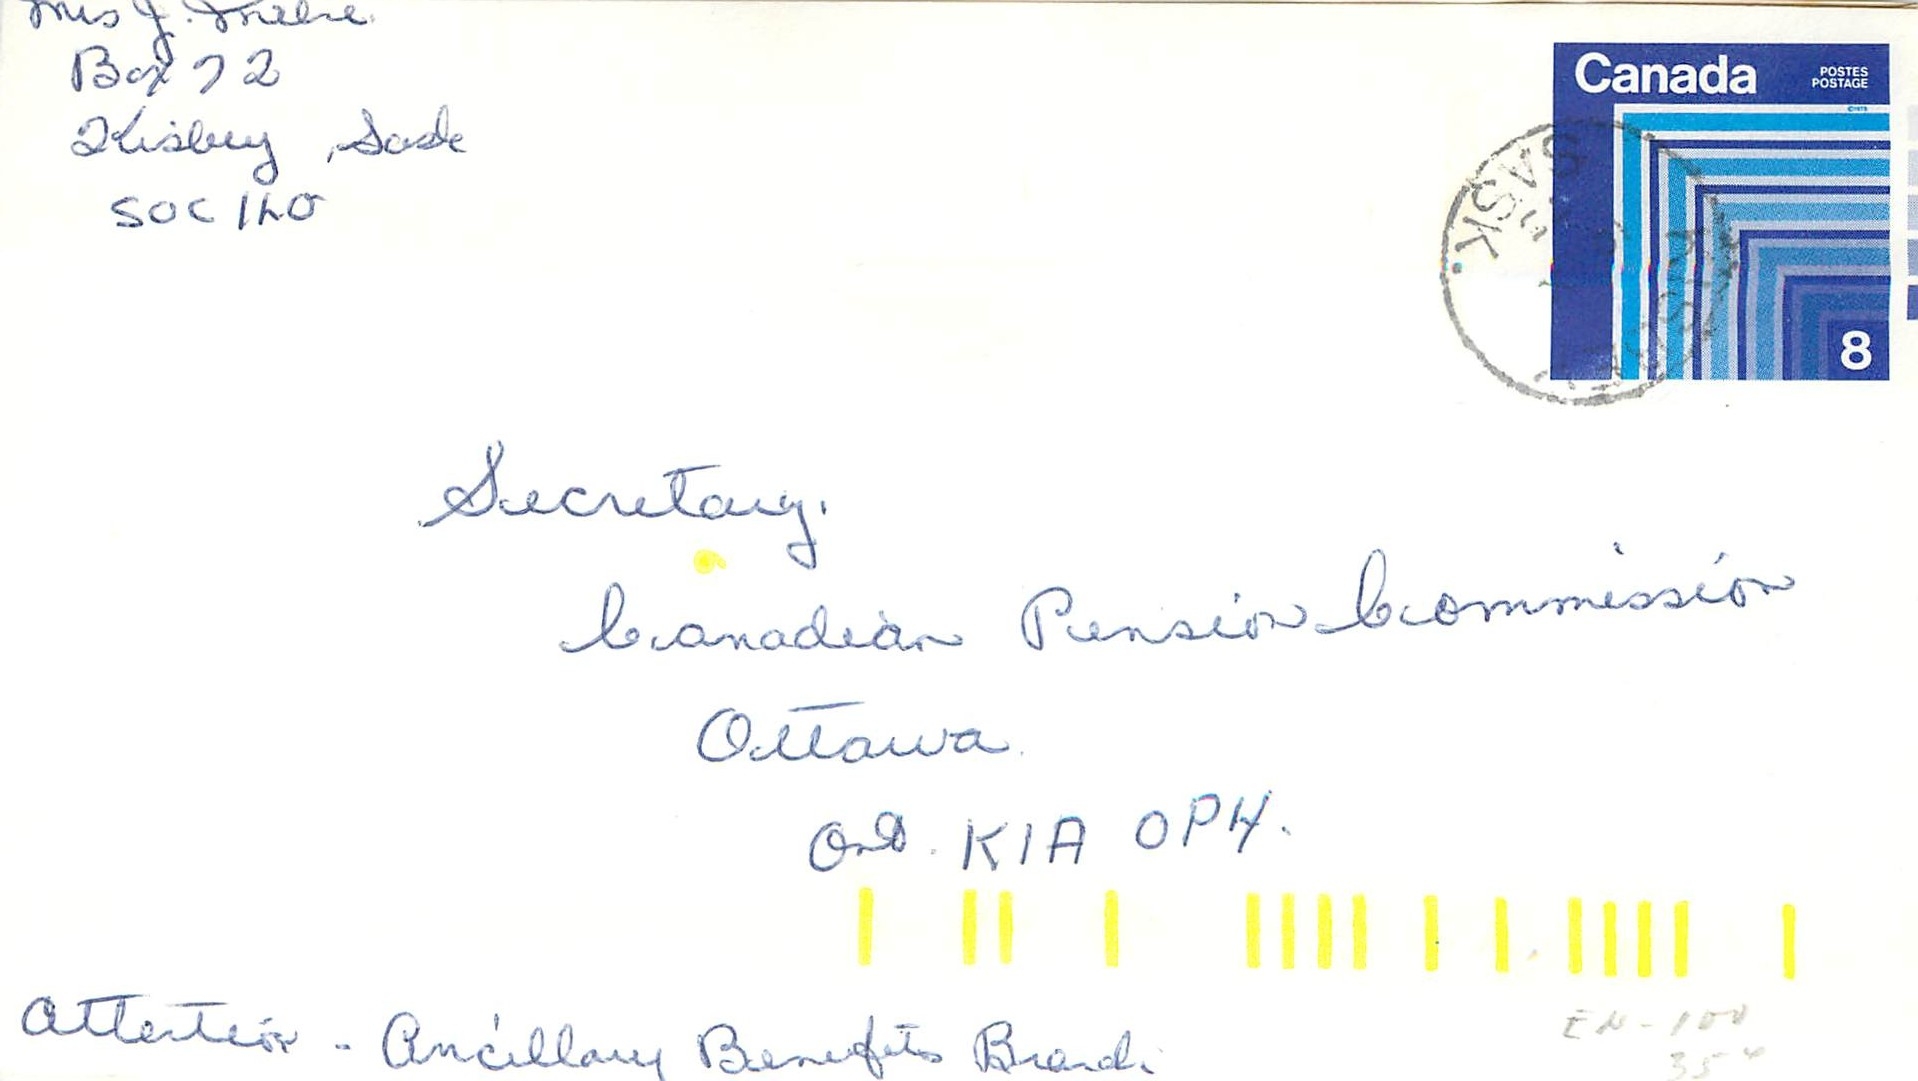 Mrs J.
Box 72
Kisbey, Sask
SOC 1L0
Canada
POSTES
POSTAGE
SASK.
8
Secretary.
Canadian Pension Commission
Ottawa.
Ont. K1A OP4.
Attention - Ancillary Benefits Branch.
EN-100